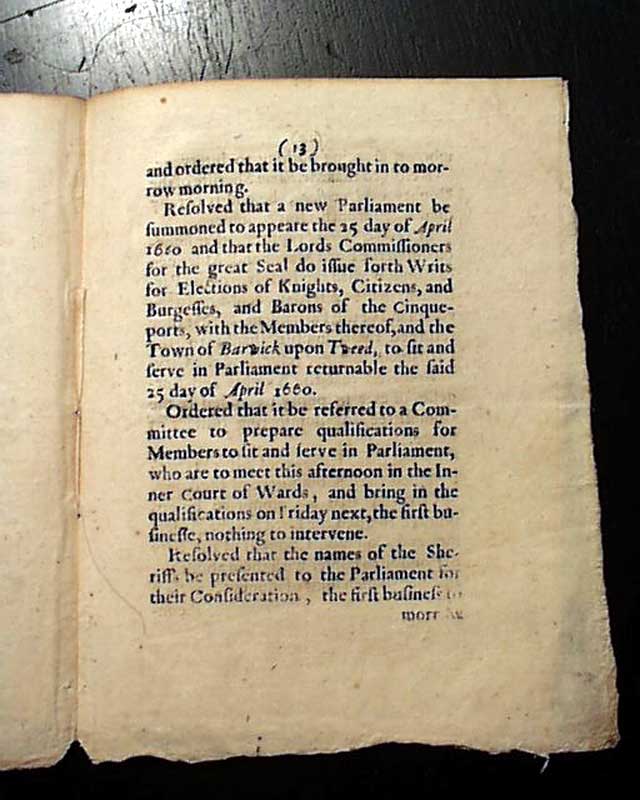 (13)
and ordered that it be brought in to mor-
row morning.
Reſolved that a new Parliament be
ſummoned to appeare the 25 day of April
1660 and that the Lords Commiſſioners
for the great Seal do iſſue forth Writs
for Elections of Knights, Citizens, and
Burgeſſes, and Barons of the Cinque-
ports, with the Members thereof, and the
Town of Barwick upon Tweed, to ſit and
ſerve in Parliament returnable the ſaid
25 day of April 1660.
Ordered that it be referred to a Com-
mittee to prepare qualifications for
Members to ſit and ſerve in Parliament,
who are to meet this afternoon in the In-
ner Court of Wards, and bring in the
qualifications on Friday next, the firſt bu-
ſineſſe, nothing to intervene.
Reſolved that the names of the She-
riffs be preſented to the Parliament for
their Conſideration, the firſt buſineſs to
morr